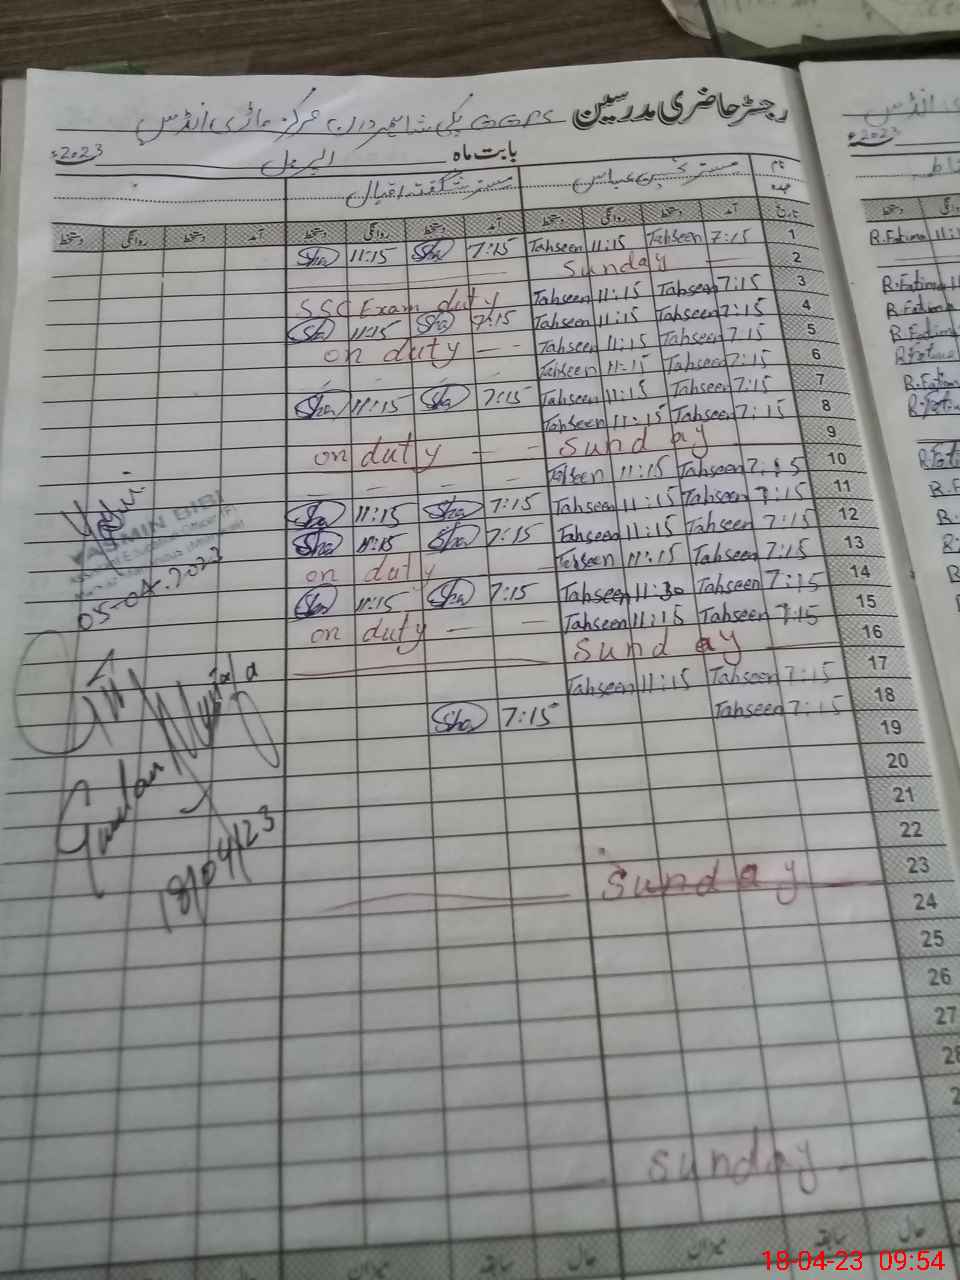 رجسٹر حاضری مدرسین GGPS پکی شاہ مردان مرکز ماڑی انڈس
بابت ماہ اپریل ۲۰۲۳ء
نام مسز تحسین عباس مسز شگفتہ اقبال
عہدہ
تاریخ آمد دستخط روانگی دستخط آمد دستخط روانگی دستخط آمد دستخط روانگی دستخط
1 7:15 Tahseen 11:15 Tahseen 7:15 Sha 11:15 Sha
2 Sunday
3 7:15 Tahseen 11:15 Tahseen SSC Exam duty
4 7:15 Tahseen 11:15 Tahseen 7:15 Sha 11:15 Sha
5 7:15 Tahseen 11:15 Tahseen on duty
6 7:15 Tahseen 11:15 Tahseen
7 7:15 Tahseen 11:15 Tahseen 7:15 Sha 11:15 Sha
8 7:15 Tahseen 11:15 Tahseen
9 Sunday on duty
10 7:15 Tahseen 11:15 Tahseen
11 7:15 Tahseen 11:15 Tahseen 7:15 Sha 11:15 Sha
12 7:15 Tahseen 11:15 Tahseen 7:15 Sha 11:15 Sha
13 7:15 Tahseen 11:15 Tahseen on duty
14 7:15 Tahseen 11:30 Tahseen 7:15 Sha 11:15 Sha
15 7:15 Tahseen 11:15 Tahseen on duty
16 Sunday
17 7:15 Tahseen 11:15 Tahseen
18 7:15 Tahseen 7:15 Sha
19
20
21
22
23 Sunday
24
25
26
27
28
sunday
YASMIN BIBI
05-04-2023
18/04/23
میزان سابقہ حال میزان سابقہ حال
۲۰۲۳ء
R.Fatima 11:
R.Fatima
R.Fatima
R.Fatima
18-04-23 09:54